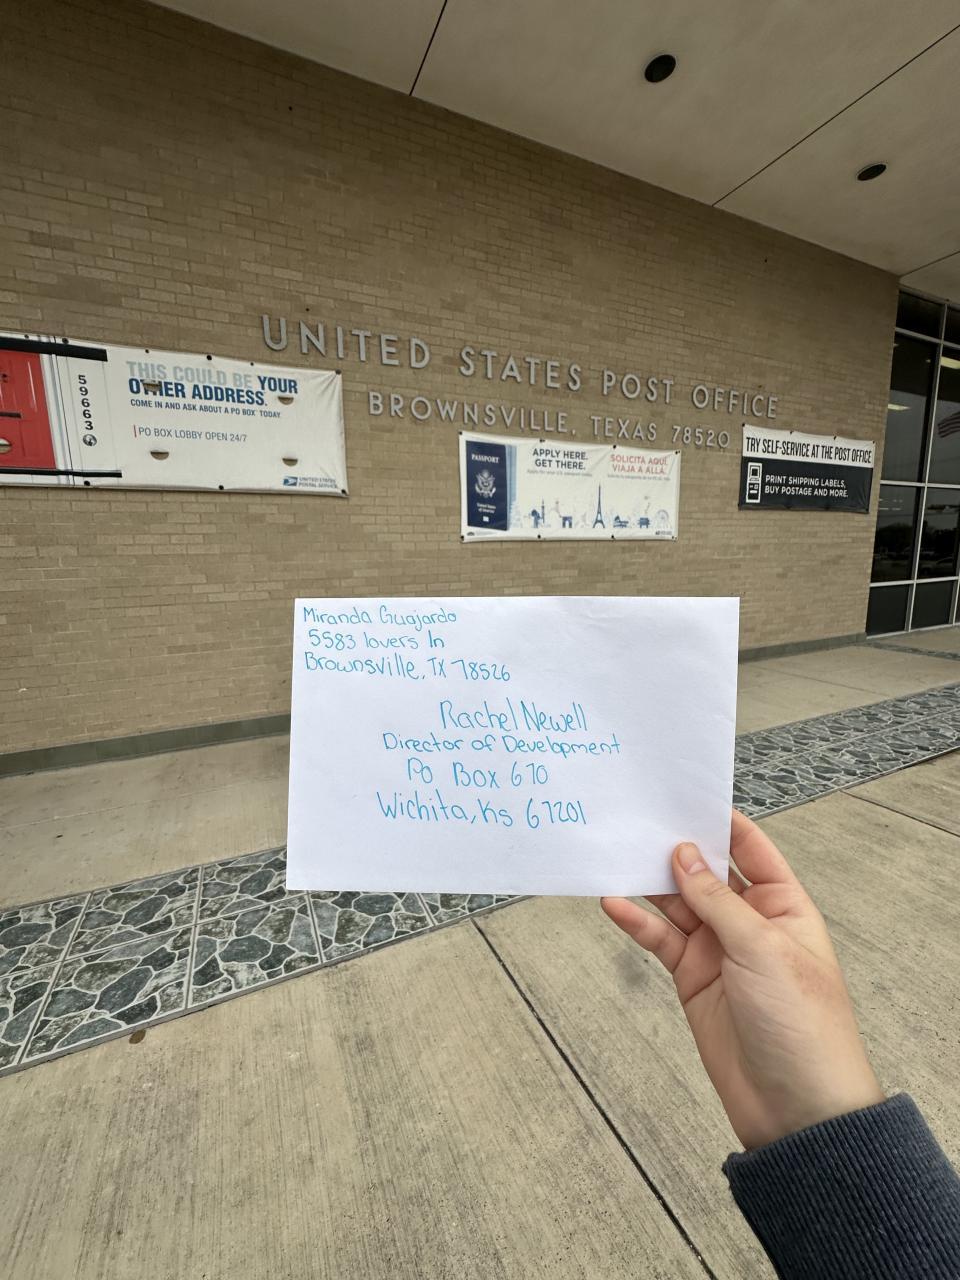 UNITED STATES POST OFFICE
BROWNSVILLE, TEXAS 78520
59663
THIS COULD BE YOUR
OTHER ADDRESS.
COME IN AND ASK ABOUT A PO BOX™ TODAY
PO BOX LOBBY OPEN 24/7
UNITED STATES
POSTAL SERVICE
PASSPORT
United States
of America
APPLY HERE.
GET THERE.
SOLICITA AQUÍ.
VIAJA A ALLÁ.
TRY SELF-SERVICE AT THE POST OFFICE
PRINT SHIPPING LABELS,
BUY POSTAGE AND MORE.
Miranda Guajardo
5583 lovers ln
Brownsville, TX 78526
Rachel Newell
Director of Development
Po Box 670
Wichita, Ks 67201